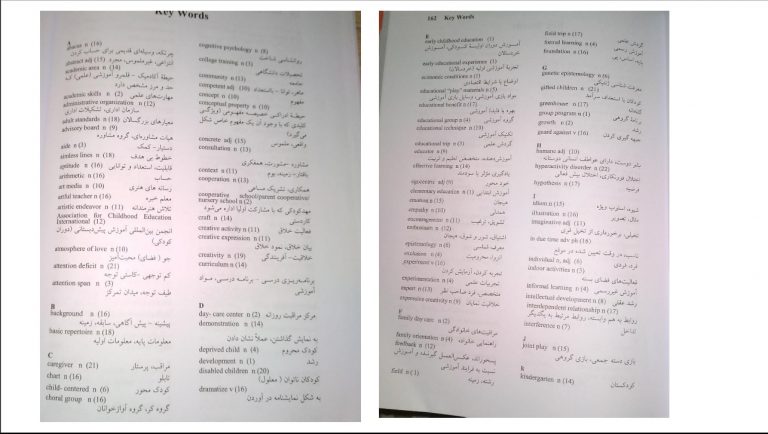 Key Words
A
abacus n (16)
چرتکه، وسیله‌ای قدیمی برای حساب کردن
abstract adj (15) انتزاعی، غیرملموس، مجرد
academic area n (14)
حیطهٔ آکادمیک - قلمرو آموزشی (علمی) که
حد و مرز مشخص دارد
academic skills n (2) مهارت‌های علمی
administrative organization n (12)
سازمان اداری، تشکیلات اداری
adult standards n (18) معیارهای بزرگسالان
advisory board n (9)
هیات مشاوره‌ای، گروه مشاوره
aide n (3) دستیار - کمک
aimless lines n (18) خطوط بی هدف
aptitude n (16) قابلیت، استعداد و توانایی
arithmetic n (16) حساب
art media n (10) رسانه های هنری
artful teacher n (16) معلم خبره
artistic endeavor n (11) تلاش هنرمندانه
Association for Childhood Education
International (12)
انجمن بین‌المللی آموزش پیش‌دبستانی (دوران
کودکی)
atmosphere of love n (10)
جو (فضای) محبت‌آمیز
attention deficit n (21)
کم توجهی - کاستی توجه
attention span n (3)
طیف توجه، میدان تمرکز
B
background n (16)
پیشینه - پیش آگاهی، سابقه، زمینه
basic repertoire n (18)
معلومات پایه، معلومات اولیه
C
caregiver n (21) مراقب، پرستار
chart n (16) تابلو
child- centered n (6) کودک محور
choral group n (16)
گروه کر، گروه آوازخوانان
cognitive psychology n (8)
روانشناسی شناخت
college training n (1)
تحصیلات دانشگاهی
community n (11) جامعه
competent adj (10) ماهر، توانا - بااستعداد
concept n (10) مفهوم
conceptual property n (10)
حیطهٔ ادراکی خصیصه مفهومی (ویژگی
کلیدی که با وجود آن یک مفهوم خاص شکل
می‌گیرد)
concrete adj (15) واقعی، ملموس
consultation n (13)
مشاوره -مشورت، همفکری
context n (11) بافتار، زمینه، بوم
cooperation n (13)
همکاری، تشریک مساعی
cooperative school/parent cooperative/
nursery school n (2)
مهدکودکی که با مشارکت اولیا اداره می‌شود
craft n (14) کاردستی
creative activity n (11) فعالیت خلاق
creative expression n (11)
بیان خلاق، نمود خلاق
creativity n (19) خلاقیت - آفریندگی
curriculum n (14)
برنامه‌ریزی درسی - برنامه درسی، مواد
آموزشی
D
day- care center n (2) مرکز مراقبت روزانه
demonstration n (14)
به نمایش گذاشتن، عملاً نشان دادن
deprived child n (4) کودک محروم
development n (1) رشد
disabled children n (20)
کودکان ناتوان (معلول)
dramatize v (16)
به شکل نمایشنامه در آوردن
162 Key Words
E
early childhood education (1)
آموزش دوران اولیه کودکی، آموزش
خردسالان
early educational experience (1)
تجربه آموزشی اولیه (خردسالان)
economic conditions n (1)
اوضاع یا شرایط اقتصادی
educational "play" materials n (5)
مواد بازی آموزشی، وسایل بازی آموزشی
educational benefit n (17)
بهره یا فایدهٔ آموزشی
educational group n (4) گروه آموزشی
educational technique n (19)
تکنیک آموزشی
educational trip n (3) گردش علمی
educator n (9)
آموزش‌دهنده، متخصص تعلیم و تربیت
effective learning n (14)
یادگیری مؤثر یا سودمند
egocentric adj (9) خود محور
elementary education n (1) آموزش ابتدایی
emotion n (15) هیجان
empathy n (10) همدلی
encouragement n (11) تشویق، ترغیب
enthusiasm n (12)
اشتیاق، شور و شوق، هیجان
epistemology n (8) معرفت شناسی
exclusion n (4) انزوا، محرومیت
experiment v (16)
تجربه کردن، آزمایش کردن
experimentation n (4) تجربیات علمی
expert n (13) متخصص، فرد صاحب نظر
expressive creativity n (9) خلاقیت نمایان
F
family day care n (2)
مراقبت‌های خانوادگی
family orientation n (4) راهنمایی خانواده
feedback n (12)
پسخوراند، عکس‌العمل گیرنده و آموزش
نسبت به فرایند آموزشی
field n (1) رشته، زمینه
field trip n (17) گردش علمی
formal learning n (4) آموزش رسمی
foundation n (16) پایه، اساس، پی
G
genetic epistemology n (6)
معرفت شناسی ژنتیکی
gifted children n (21)
کودکان با استعداد سرآمد
greenhouse n (17) گلخانه
group program n (1) برنامهٔ گروهی
growth n (2) رشد
guard against v (16) جبهه گیری کردن
H
humane adj (10)
بشر دوست، دارای عواطف انسانی دوستانه
hyperactivity disorder n (22)
اختلال فزونکاری، اختلال بیش فعالی
hypothesis n (17) فرضیه
I
idiom n (15) شیوه، اسلوب ویژه
illustration n (16) مثال، تصویر
imaginative adj (11)
تخیلی، برخورداری از تخیل قوی
in due time adv ph (16)
تناسب، در وقت تعیین شده، در موقع
individual n, adj (6) فرد، فردی
indoor activities n (3)
فعالیت‌های فضای بسته
informal learning n (4) آموزش غیررسمی
intellectual development n (8) رشد عقلی
interdependent relationship n (17)
روابط به هم وابسته، روابط مرتبط به یکدیگر
interference n (7) تداخل
J
joint play n (15)
بازی دسته جمعی، بازی گروهی
K
kindergarten n (14) کودکستان